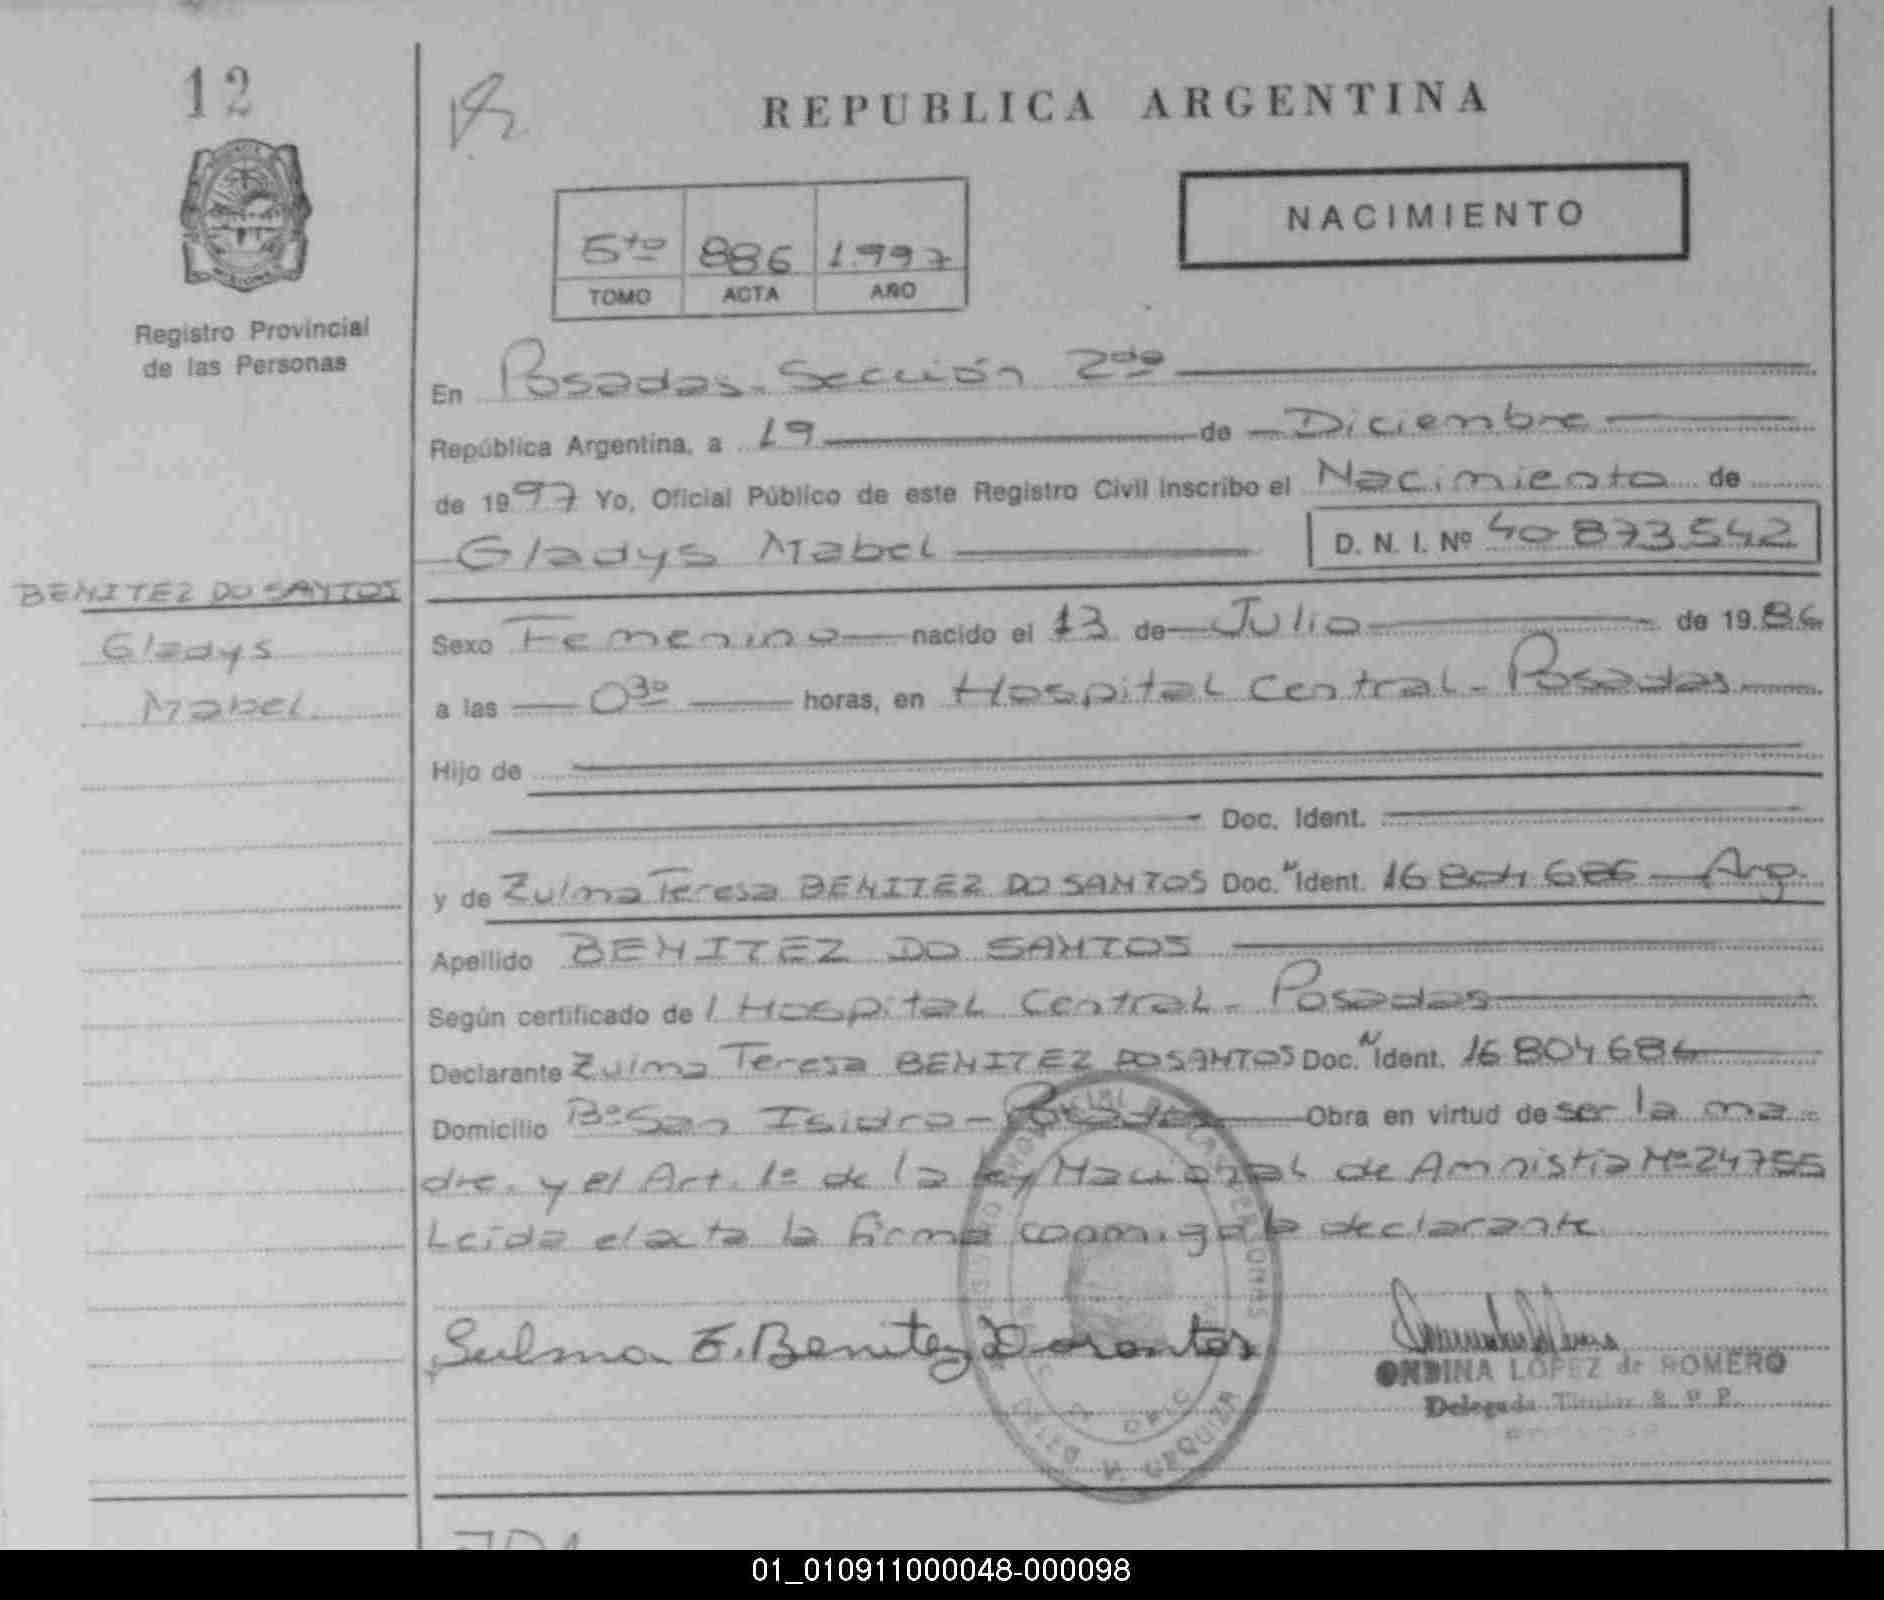 12
REPUBLICA ARGENTINA
NACIMIENTO
5to 886 1.997
TOMO ACTA AÑO
Registro Provincial
de las Personas
En Posadas - Sección 2da
República Argentina, a 19 de Diciembre
de 1997 Yo, Oficial Público de este Registro Civil inscribo el Nacimiento de
Gladys Mabel D. N. I. Nº 40 873 542
BENITEZ DO SANTOS
Gladys
Mabel
Sexo Femenino nacido el 13 de Julio de 1986
a las 03º horas, en Hospital Central - Posadas
Hijo de
Doc. Ident.
y de Zulma Teresa BENITEZ DO SANTOS Doc. N Ident. 16 804 686 - Arg.
Apellido BENITEZ DO SANTOS
Según certificado de l Hospital Central - Posadas
Declarante Zulma Teresa BENITEZ DO SANTOS Doc. N Ident. 16 804 686
Domicilio Bº San Isidro - Posadas Obra en virtud de ser la ma
dre. y el Art. 1º de la ley Nacional de Amnistía Nº 24755
Leída el acta la firma conmigo la declarante
Sulma T. Benitez Dosantos
ONDINA LOPEZ de ROMERO
Delegada Titular R. P. P.
01_010911000048-000098